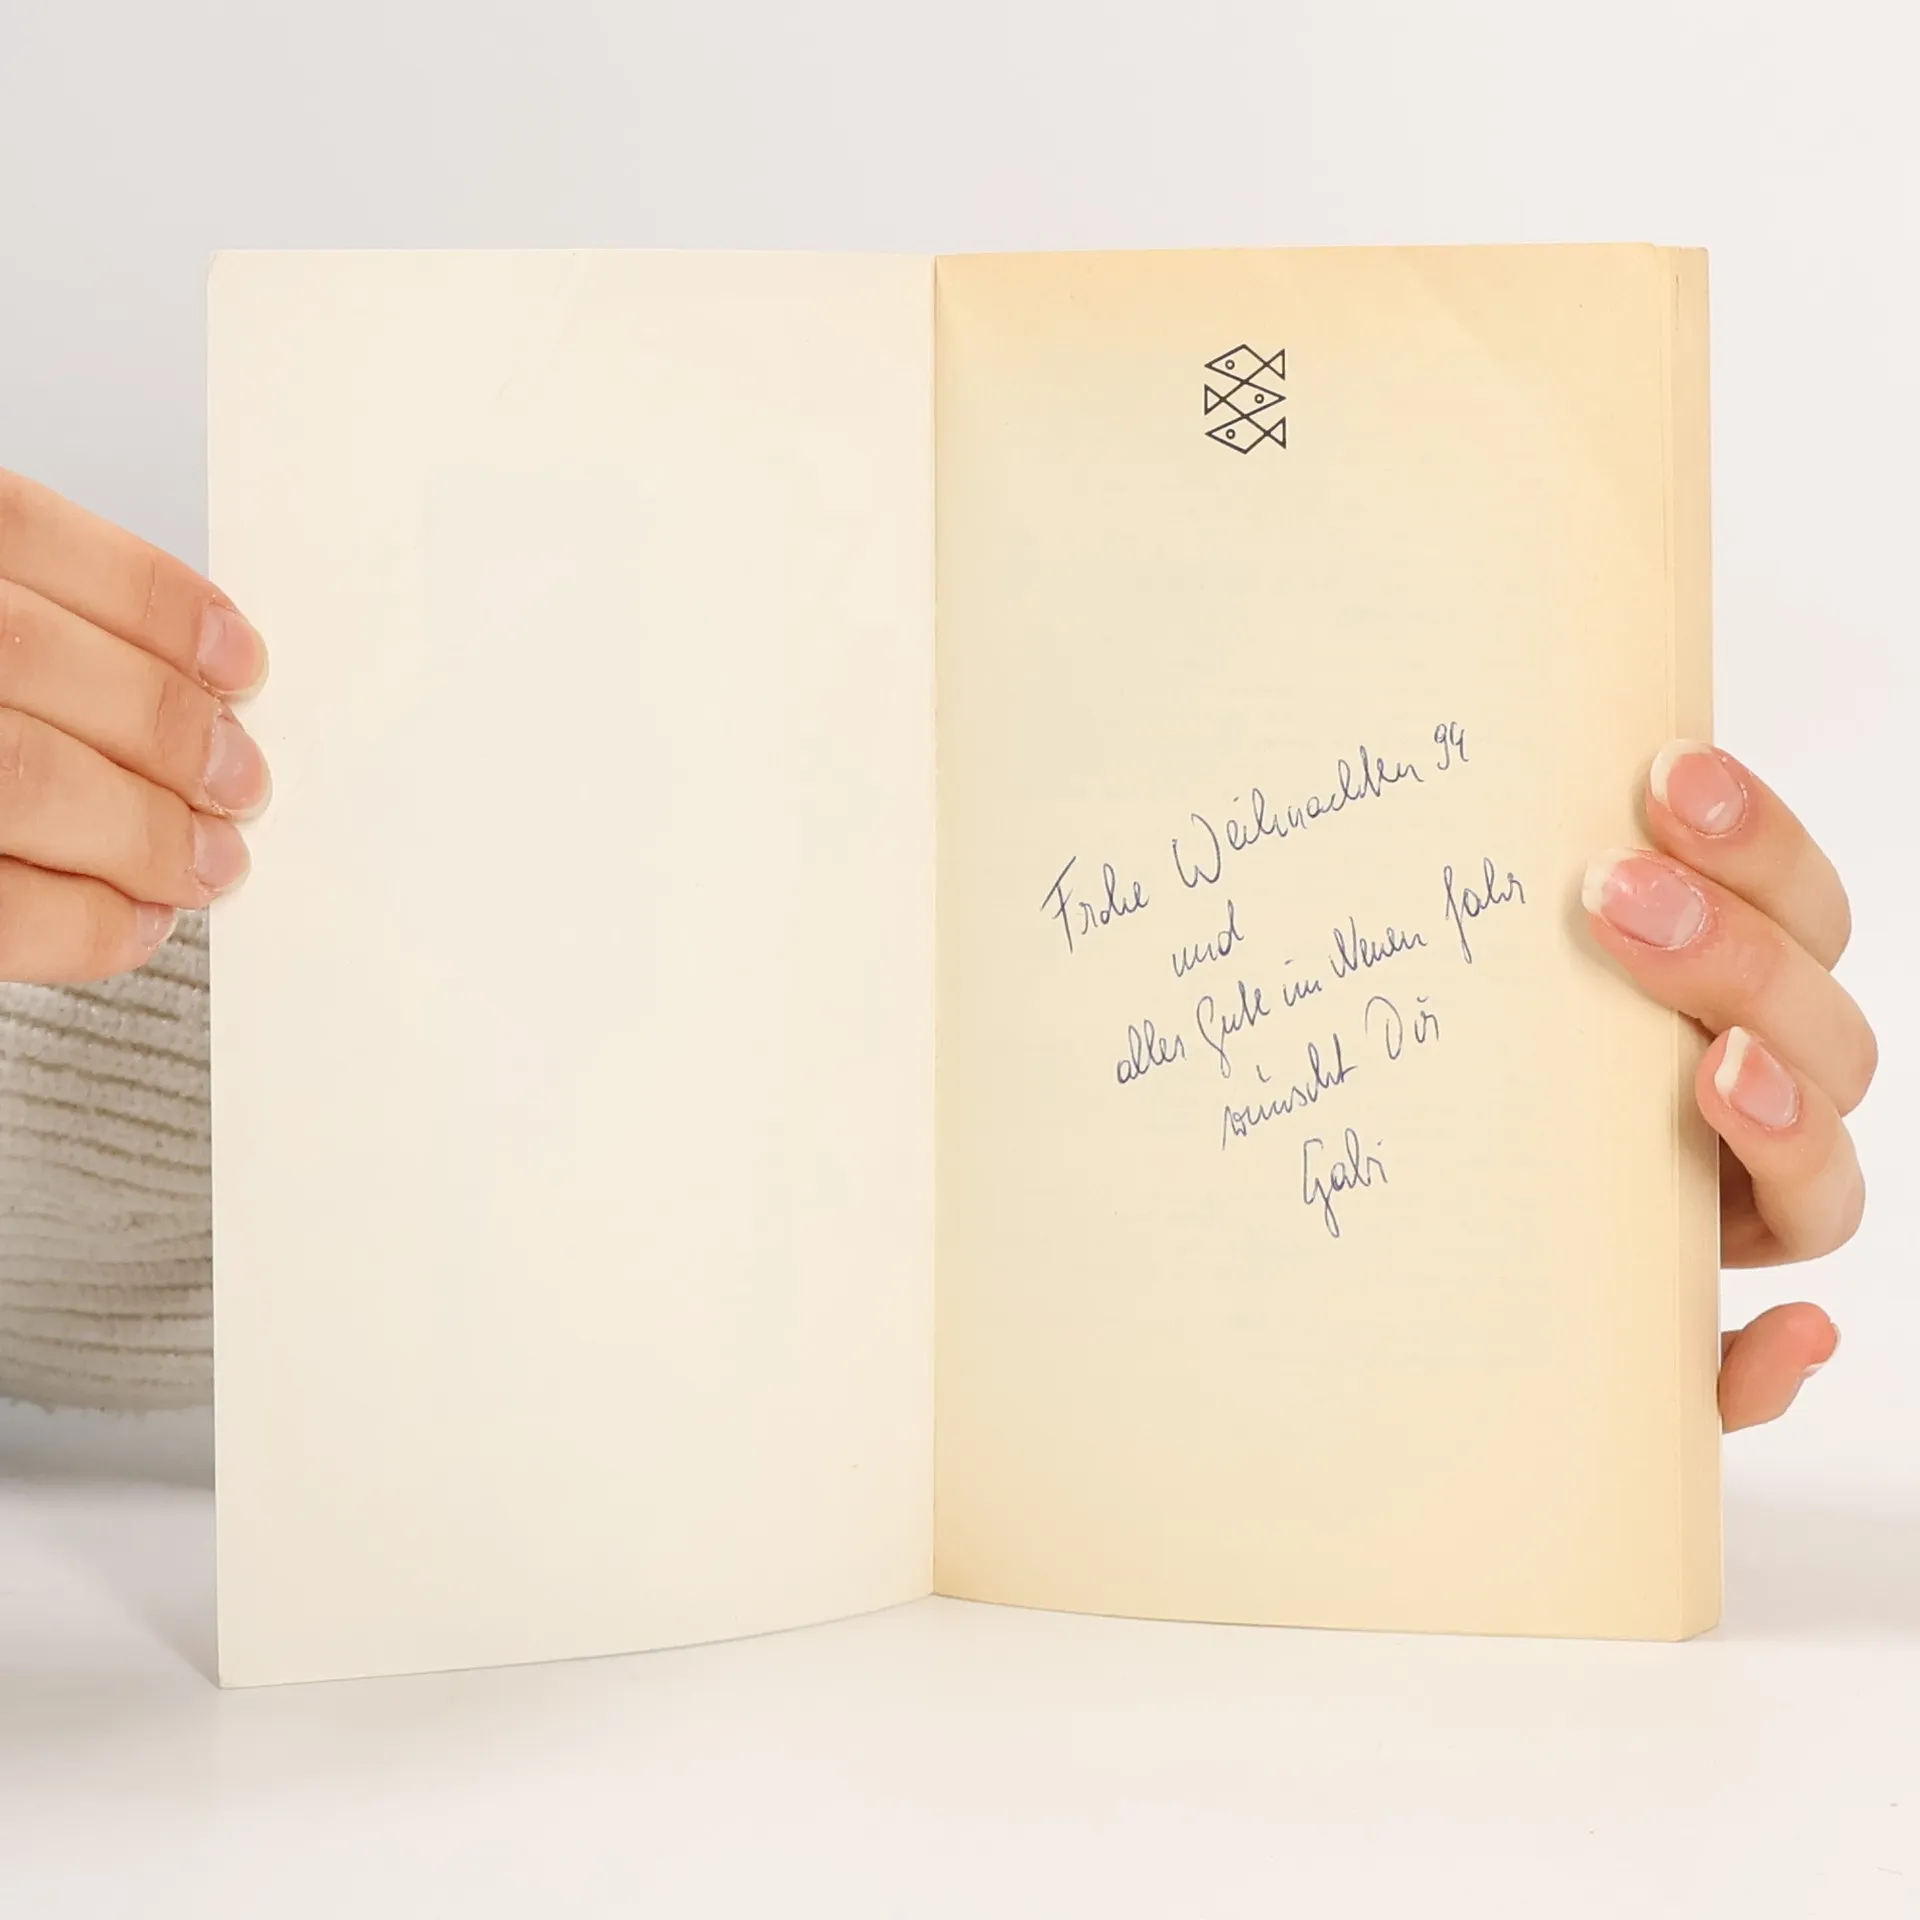 Frohe Weihnachten 94
und
alles Gute im Neuen Jahr
wünscht Dir
Gabi